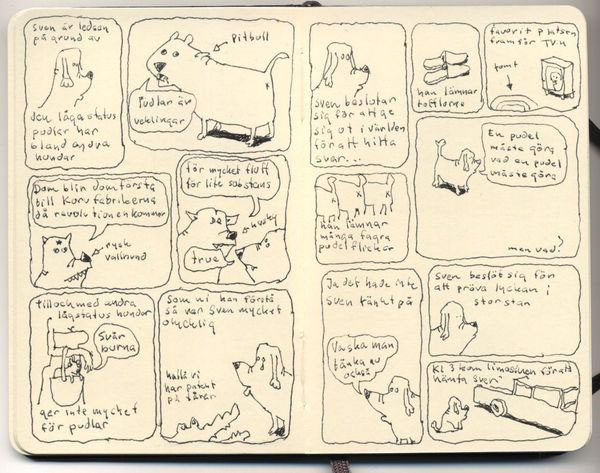 Sven är ledsen
på grund av
den låga status
pudlar har
bland andra
hundar
Pitbull
Pudlar är
veklingar
Dom blir dom första
till Korv fabrikerna
då revolutionen kommer
rysk
vallhund
för mycket fluff
för lite substans
husky
true
tilloch med andra
lågstatus hundar
Svår
burna
ger inte mycket
för pudlar
Som ni kan förstå
så var Sven mycket
olycklig
hallå vi
har patent
på tårar
Sven beslutar
sig för att ge
sig ut i världen
för att hitta
svar...
han lämnar
tofflorna
favorit platsen
framför TV:n
tomt
han lämnar
många fagra
pudel flickor
En pudel
måste göra
vad en pudel
måste göra
men vad?
Ja det hade inte
Sven tänkt på
Va ska man
tänka nu
också
Sven beslöt sig för
att pröva lyckan i
storstan
Kl 3 kom limosinen för att
hämta Sven